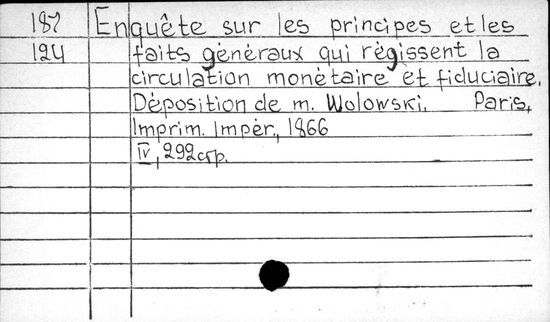 187 Enquête sur les principes et les
124 faits généraux qui régissent la
circulation monétaire et fiduciaire.
Déposition de m. Wolowski. Paris,
Imprim. Impér, 1866
IV, 292 стр.